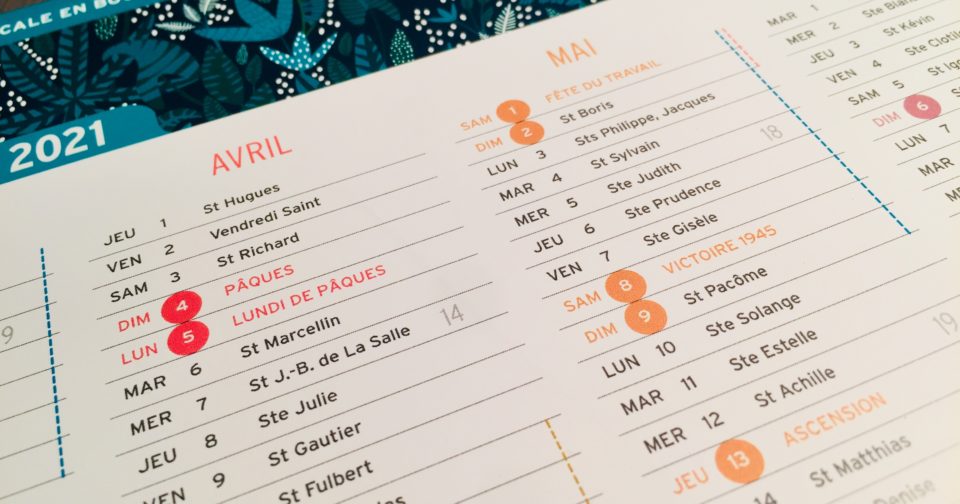 CALE EN BOU
2021
AVRIL
JEU 1 St Hugues
VEN 2 Vendredi Saint
SAM 3 St Richard
DIM 4 PÂQUES
LUN 5 LUNDI DE PÂQUES
MAR 6 St Marcellin
MER 7 St J.-B. de La Salle 14
JEU 8 Ste Julie
VEN 9 St Gautier
St Fulbert
9
MAI
SAM 1 FÊTE DU TRAVAIL
DIM 2 St Boris
LUN 3 Sts Philippe, Jacques
MAR 4 St Sylvain 18
MER 5 Ste Judith
JEU 6 Ste Prudence
VEN 7 Ste Gisèle
SAM 8 VICTOIRE 1945
DIM 9 St Pacôme
LUN 10 Ste Solange
MAR 11 Ste Estelle 19
MER 12 St Achille
JEU 13 ASCENSION
14 St Matthias
Denise
MAR 1
MER 2 Ste Blan
JEU 3 St Kévin
VEN 4 Ste Clotil
SAM 5 St Igo
DIM 6
LUN 7
MAR
ME